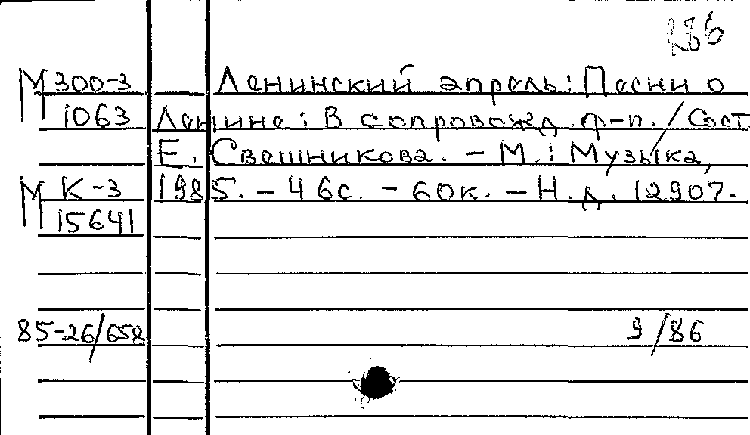 286
М 300-3 Ленинский апрель: Песни о
1063 Ленине: В сопровожд. ф-п. / Сост.
Е. Свешникова. - М.: Музыка,
М К-3 1985. - 46с. - 60к. - Н.д. 12907.
15641
85-26/658 9/86